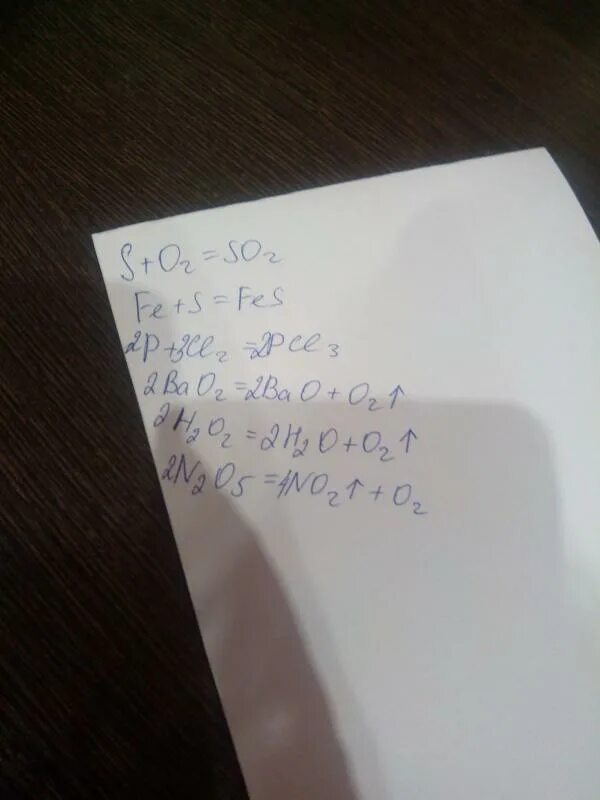 S+O₂=SO₂
Fe+S=FeS
2P+3Cl₂=2PCl₃
2BaO₂=2BaO+O₂↑
2H₂O₂=2H₂O+O₂↑
2N₂O₅=4NO₂↑+O₂